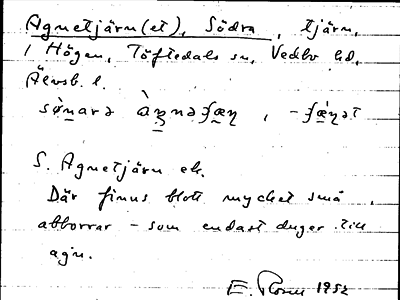 Agnetjärn(et), Södra, tjärn,
i Högen, Töftedals sn, Vedbo hd,
Älvsb. l.
sø̀narə àŋnəʃæŋ, -ʃæ̀ŋət
S. Agnetjärn ek.
Där finns blott mycket små
abborrar - som endast duger till
agn.
E. 1952